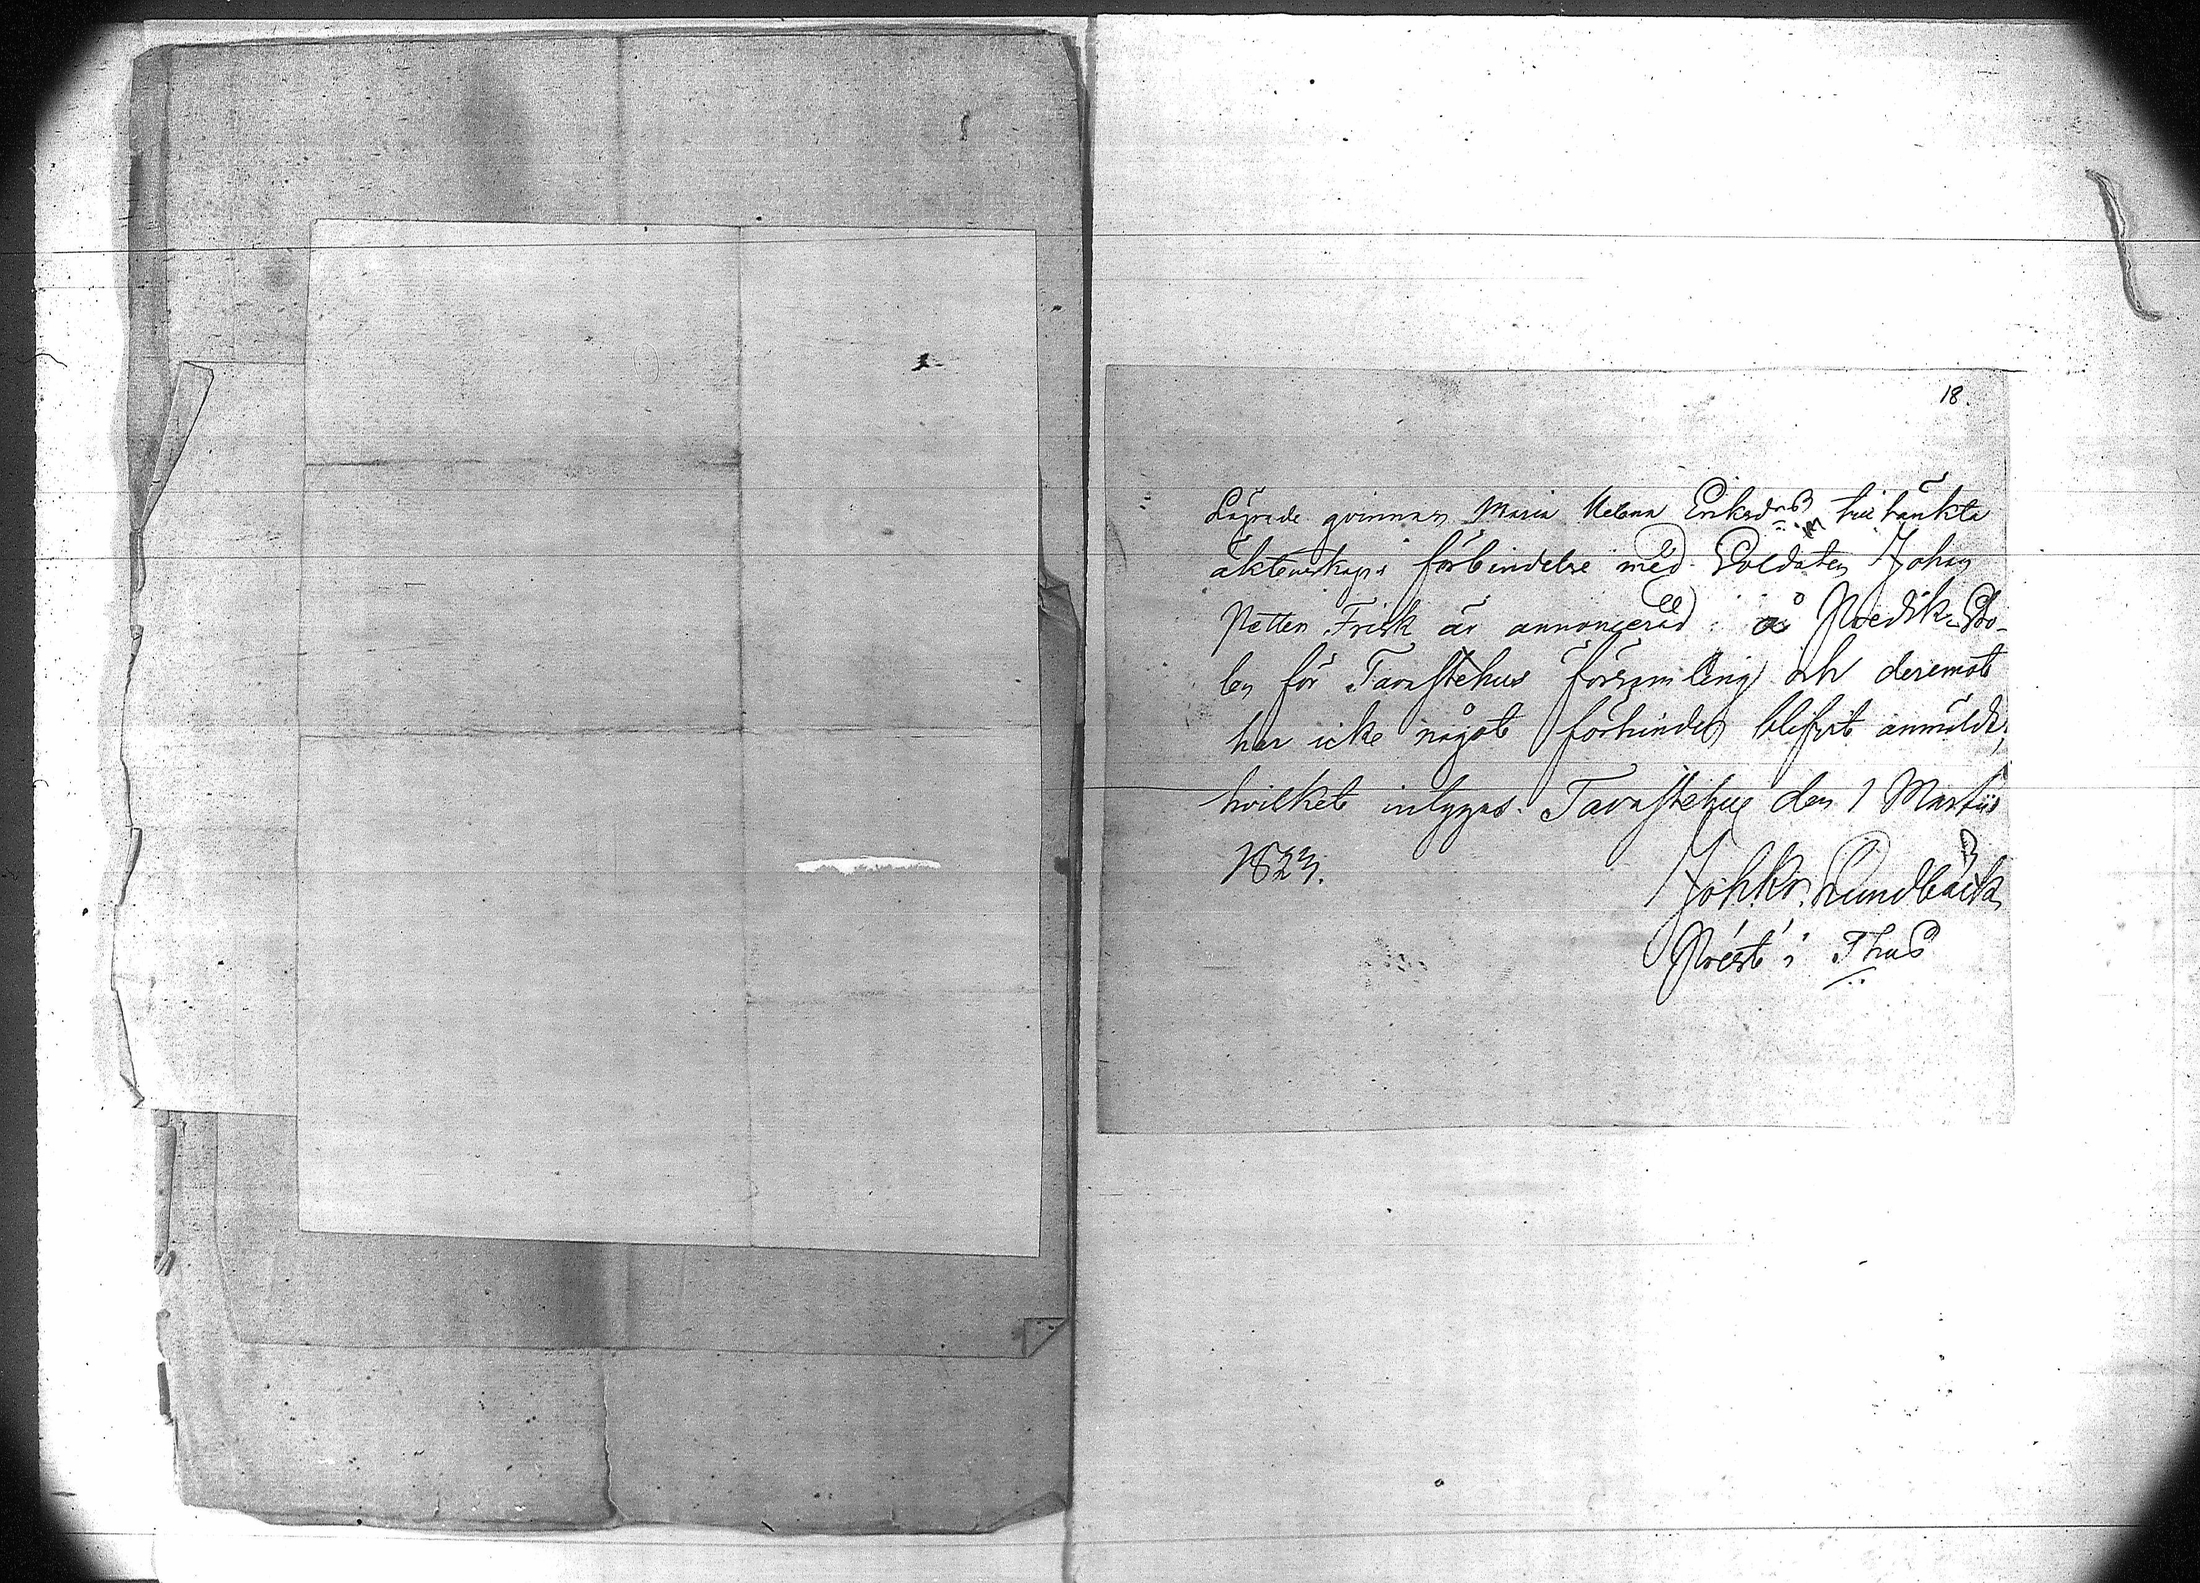 18.
Lägrade qvinnan Maria Helena Eriksdrß tilltänkta
äktenskaps förbindelse med Soldaten Johan
Petter Frisk är annoncerad å Predik-Sto-
len för Tavastehus församling och deremot
har icke något förhinder blifvit anmäldt,
hvilket intygas. Tavastehus den 1 Martii
1823.
Joh. Lundbäck
Präst i Thus